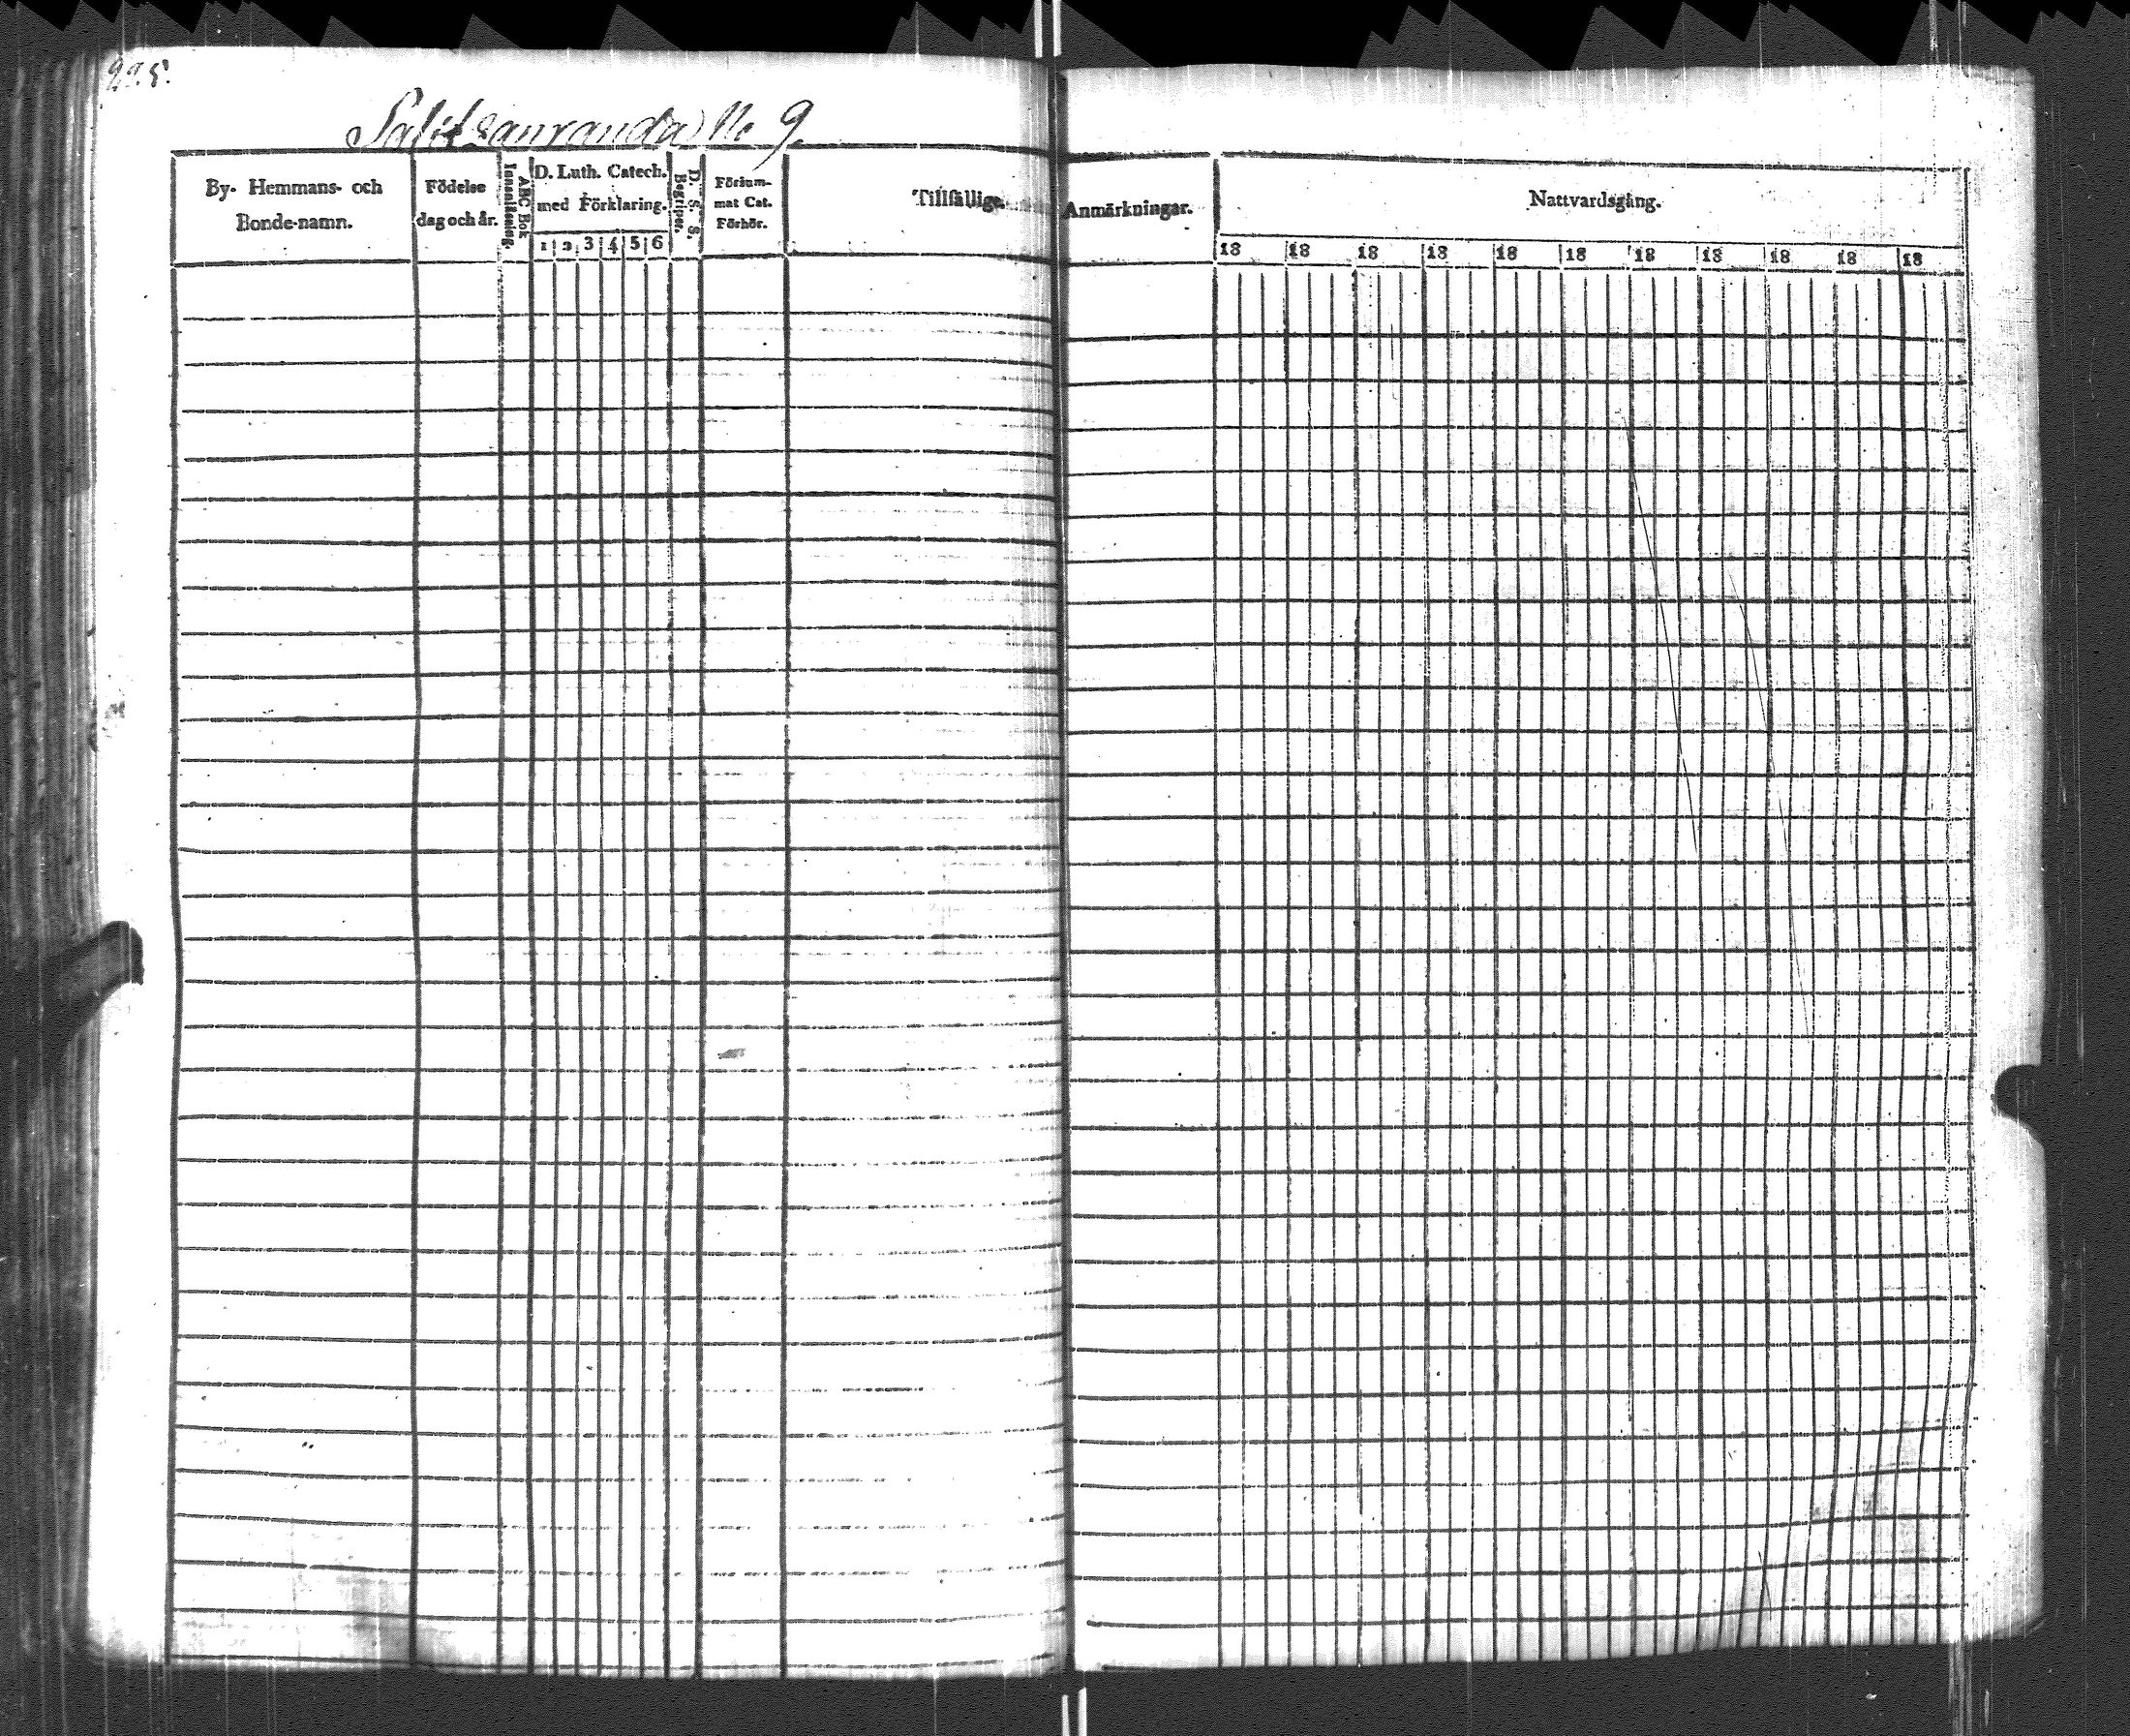 225.
No 9.
By- Hemmans- och
Bonde-namn.
Födelse
dag och år.
ABC Bok
Innanläsning.
D. Luth. Catech.
med Förklaring.
1 2 3 4 5 6
D. S. S.
Begriper.
Försum-
mat Cat.
Förhör.
Tillfällige
Anmärkningar.
Nattvardsgång.
18 18 18 18 18 18 18 18 18 18 18